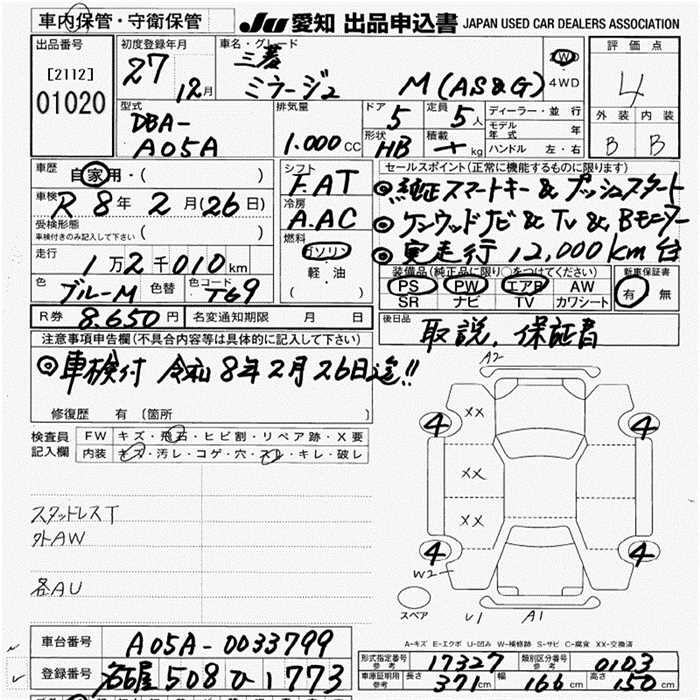 車内保管・守衛保管
Ju 愛知 出品申込書 JAPAN USED CAR DEALERS ASSOCIATION
出品番号
[2112]
01020
初度登録年月
27
12月
車名・グレード
三菱
ミラージュ M(AS&G)
2WD
・
4WD
評価点
4
外装 内装
B B
型式
DBA-
A05A
排気量
1.000CC
ドア
5
定員
5人
形状
HB
積載
kg
ディーラー・並行
モデル年式 年
ハンドル 左・右
車歴
自家用・( )
車検
R 8年 2月(26日)
受検形態
車検付きのみ記入して下さい ( )
走行
1万2千010km
色
ブルーM
色替
色コード
T69
シフト
F.AT
冷房
A.AC
燃料
ガソリン
・
軽・油
( )
セールスポイント(正常に機能するものに限ります)
◎純正スマートキー&プッシュスタート
◎ケンウッドナビ&TV&Bモニター
◎実走行 12,000km台
装備品(純正品に限り○をつけてください)
PS PW エアB AW
SR ナビ TV カワシート
新車保証書
有・無
R券 8.650円
名変通知期限 月 日
後日品
取説、保証書
注意事項申告欄(不具合内容等は具体的に記入して下さい)
◎車検付 令和8年2月26日迄!!
修復歴 有 〔箇所 〕
検査員
記入欄
FW キズ・飛石・ヒビ割・リペア跡・X要
内装 キズ・汚レ・コゲ・穴・スレ・キレ・破レ
スタッドレスT
外AW
各AU
A2
4
XX
4
XX
XX
4
4
W2
スペア
U1
A1
A-キズ E-エクボ U-凹み W-補修跡 S-サビ C-腐食 XX-交換済
車台番号
A05A-0033799
登録番号
名古屋 508 ひ 1773
形式指定番号
参考
17327
類別区分番号
参考
0103
車庫証明用
参考
長さ
371cm
幅
166cm
高さ
150cm